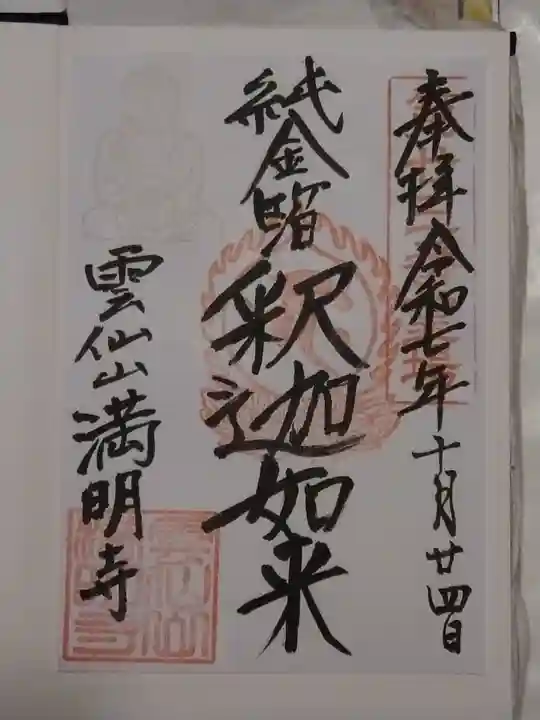 奉拝 令和七年十月廿四日
純金箔 釈迦如来
雲仙山 満明寺